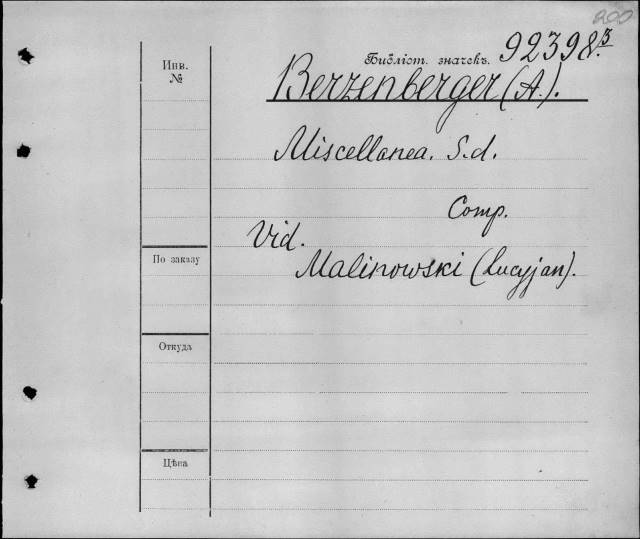 200
Инв. №
Библіот. значекъ. 92398.3
Berzenberger (A.).
Miscellanea. S.d.
Comp.
Vid.
Malinowski (Lucyjan).
По заказу
Откуда
Цѣна